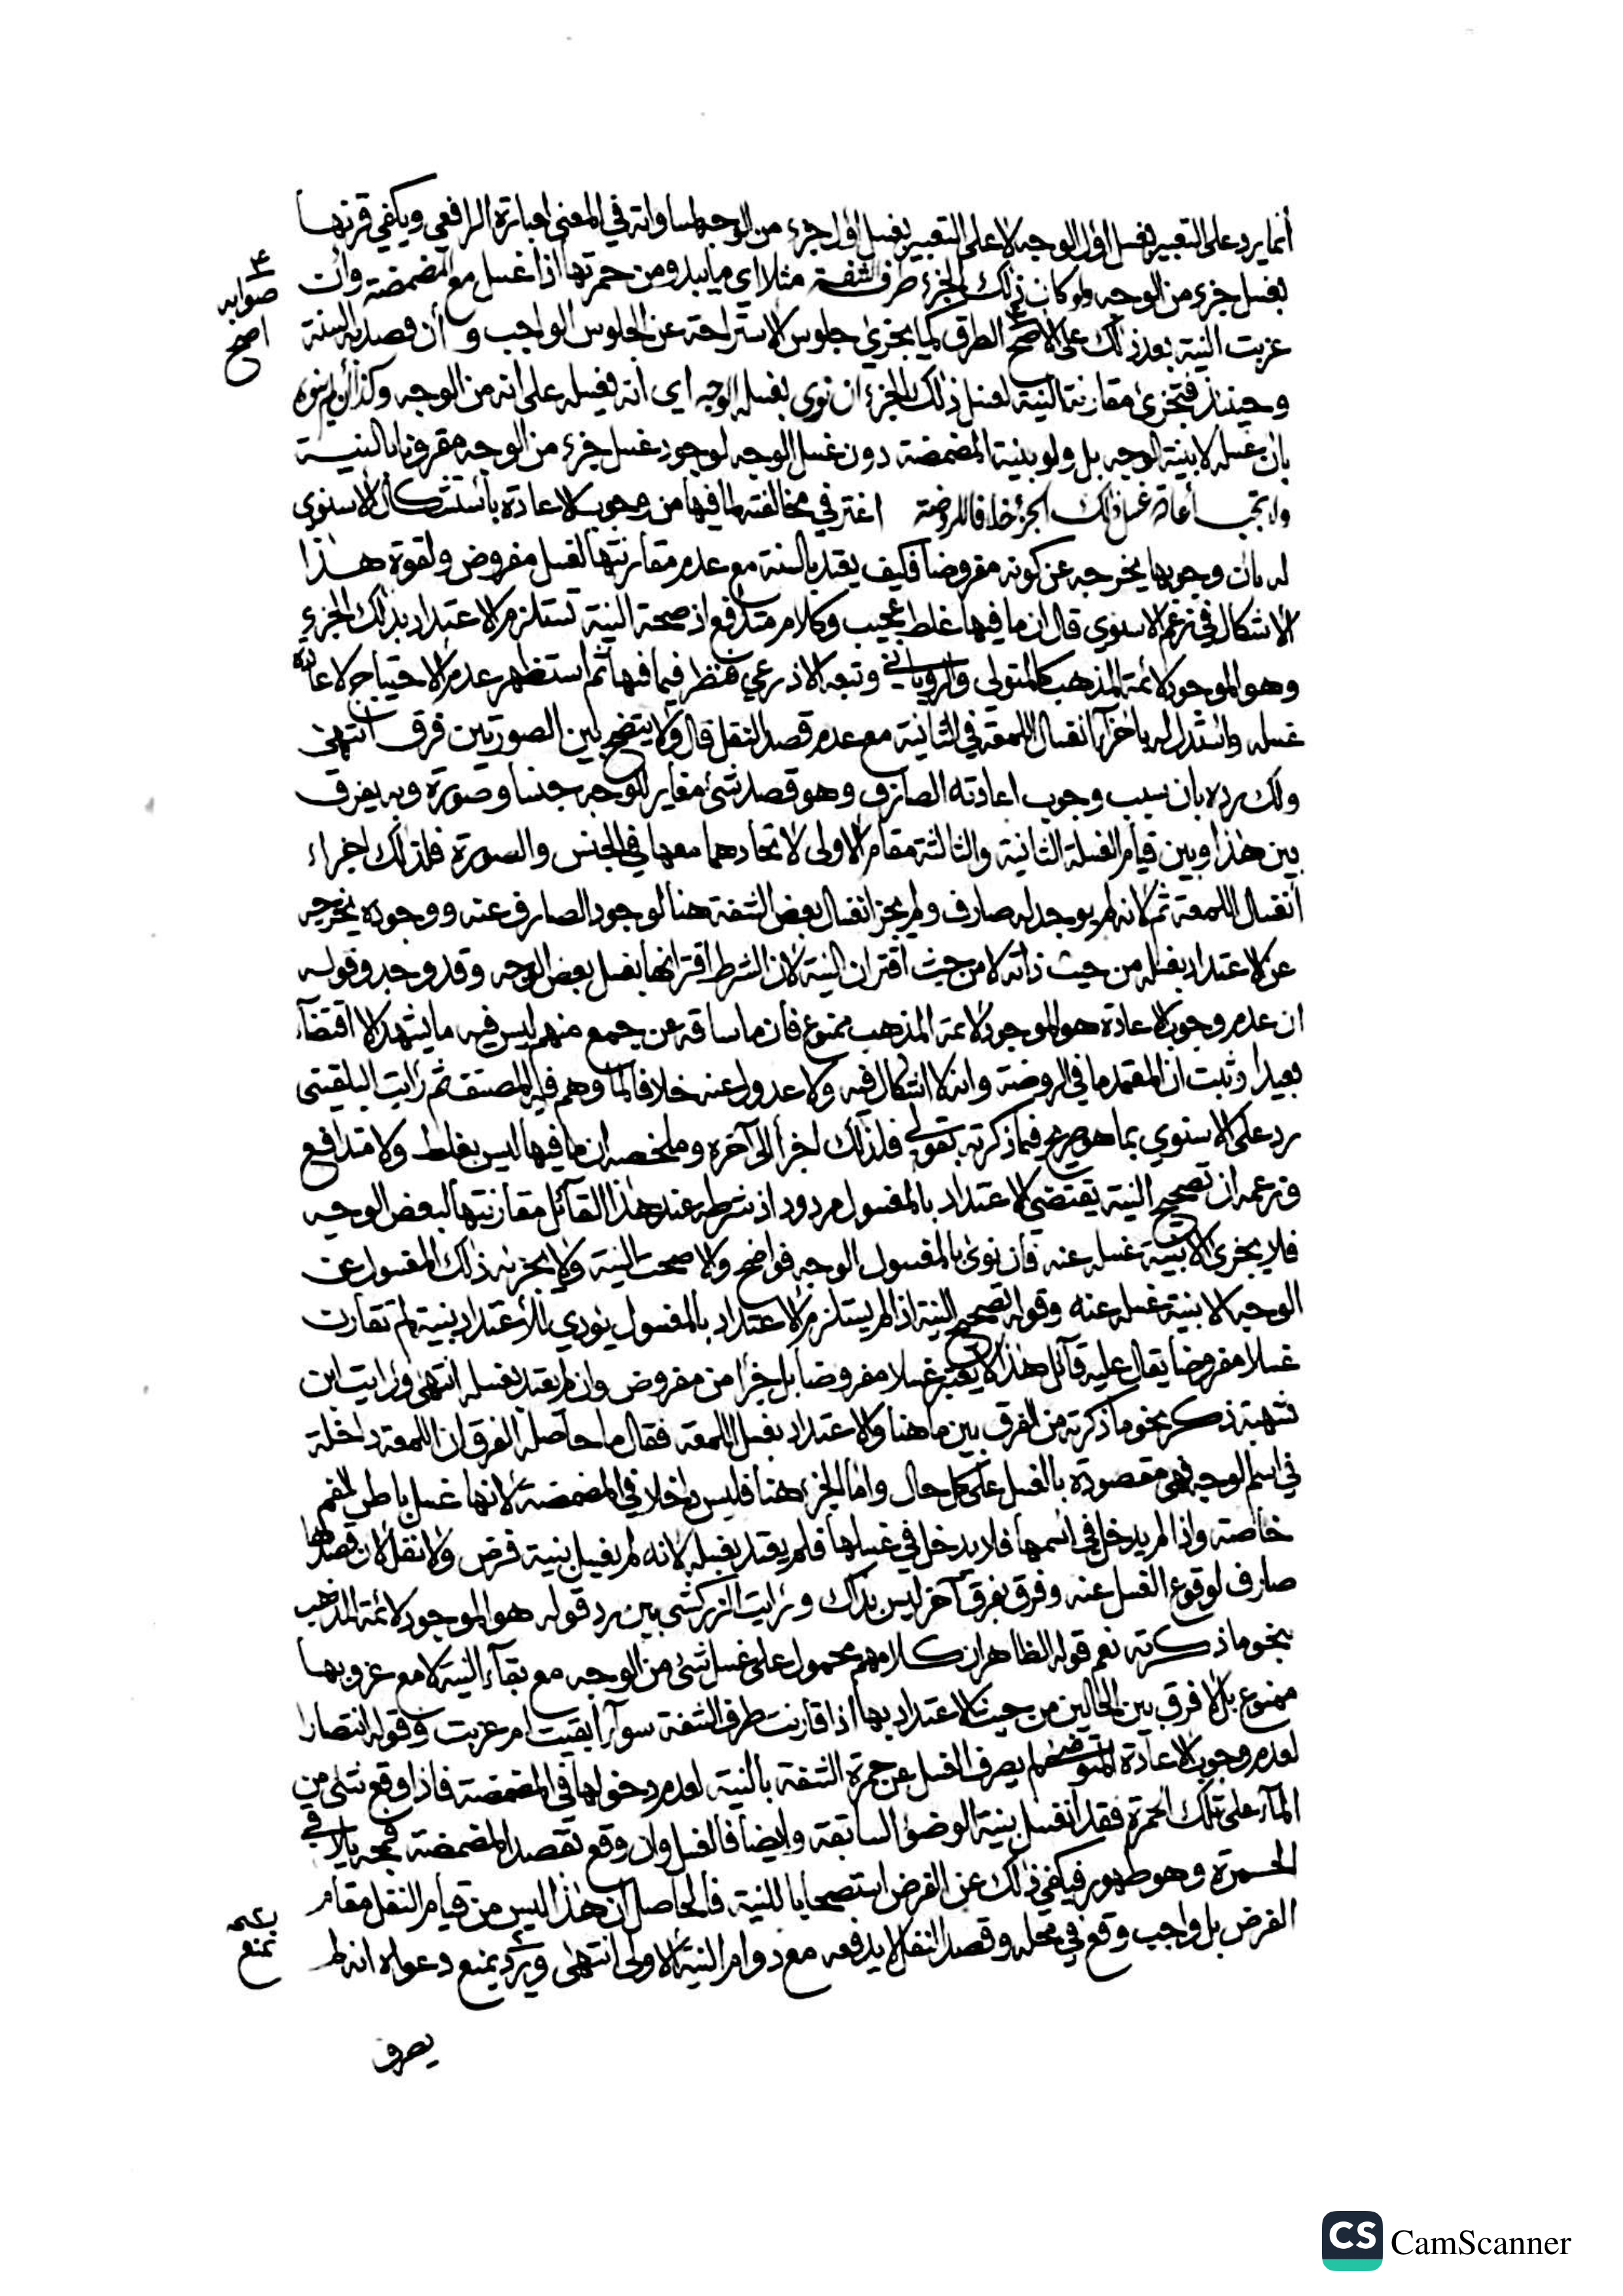 أنما يرد على التعبير بغسل اول الوجه لا على التعبير بغسل اول جزء من الوجه لمساواته في المعنى لعبارة الرافعي ويكفي قرنها
بغسل جزء من الوجه ولو كان ذلك الجزء طرف الشفة مثلا اي ما يبدو من حمرتها اذا غسل مع المضمضة وان
عزبت النية بعد ذلك على الاصح الطرق كما يجزئ جلوس الاستراحة عن الجلوس الواجب و أن قصد به السنة
صوابه
اصح
وحينئذ فتجزئ مقارنة النية لغسل ذلك الجزء ان نوى بغسله الوجه اي انه يغسله على انه من الوجه وكذا أن لم ينوه
بان غسله لا بنية الوجه بل ولو بنية المضمضة دون غسل الوجه لوجود غسل جزء من الوجه مقرونا بالنية
ولا تجب أعادة غسل ذلك الجزء خلافا للروضة اغتر في مخالفته لما فيها من وجوب الاعادة بأستشكال الاسنوي
له بان وجوبها يخرجه عن كونه مفروضا فكيف يعتد بالسنة مع عدم مقارنتها لغسل مفروض ولقوة هذا
الاشكال في زعم الاسنوي قال ان ما فيها غلط عجيب وكلام متدافع اذ صحة النية تستلزم الاعتداد بذلك الجزء
وهو الموجود لائمة المذهب كالمتولى والروياني وتبعه الاذرعي فنظر فيما فيها ثم استظهر عدم الاحتياج لاعادة
غسله واستدل له باجزاء انغسال اللمعة في الثانية مع عدم قصد النفل قال ولا يتضح بين الصورتين فرق انتهى
ولك رده بان سبب وجوب اعادته الصارف وهو قصد شئ مغاير للوجه جنسا وصورة وبه يفرق
بين هذا وبين قيام الغسلة الثانية والثالثة مقام الاولى لاتحادهما معها في الجنس والصورة فلذلك اجزاء
أنغسال اللمعة ثم لانه لم يوجد له صارف ولم يجز انغسال بعض الشفة هنا لوجود الصارف عنه ووجوده يخرجه
عن الاعتداد بغسله من حيث ذاته لا من حيث اقتران النية لان الشرط اقترانها بغسل بعض الوجه وقد وجد وقوله
ان عدم وجوب الاعادة هو الموجود لائمة المذهب ممنوع فان ما ساقه عن جمع منهم ليس فيه ما يشهد الا اقتضاء
بعيدا وثبت ان المعتمد ما في الروضة وانه لا اشكال فيه ولا عدول عنه خلافا لما وهم فيه المصنف ثم رايت البلقيني
رد على الاسنوي بما هو صريح فيما ذكرته بقولي فلذلك اجزأ الى آخره وملخصه ان ما فيها ليس بغلط ولا متدافع
وزعمه ان تصحيح النية يقتضي الاعتداد بالمغسول مردود اذ شرطه عند هذا القائل مقارنتها لبعض الوجه
فلا يجزئ الا بنية غسله عنه فان نوى بالمغسول الوجه فواضح والا صحت النية ولا يجزئه ذلك المغسول عن
الوجه الا بنية غسله عنه وقوله تصحيح النية اذا لم يستلزم الاعتداد بالمغسول يؤدي للأعتداد بنية لم تقارن
غسلا مفروضا يقال عليه قائل هذا لا يعتبر غسلا مفروضا بل جزأ من مفروض وان لم يعتد بغسله انتهى ورايت ابن
شهبة ذكر نحو ما ذكرته من الفرق بين ما هنا والاعتداد بغسل اللمعة فقال ما حاصله الفرق ان اللمعة داخلة
في اسم الوجه فهي مقصودة بالغسل على كل حال واما الجزء هنا فليس داخلا في المضمضة لانها غسل باطن الفم
خاصة واذا لم يدخل في اسمها فلا يدخل في غسلها فلم يعتد بغسله لانه لم يغسل بنية فرض ولا نفل لان قصدها
صارف لوقوع الغسل عنه وفرق بفرق آخر ليس بذاك ورايت الزركشي بين رد قوله هو الموجود لائمة المذهب
بنحو ما ذكرته نعم قوله الظاهر ان كلامهم محمول على غسل شئ من الوجه مع بقاء النية لا مع عزوبها
ممنوع بل لا فرق بين الحالين من حيث الاعتداد بها اذا قارنت طرف الشفة سواء أبقيت ام عزبت وقوله انتصارا
لعدم وجوب الاعادة المتوضئ لم يصرف الغسل عن حمرة الشفة بالنية لعدم دخولها في المضمضة فاذا وقع شئ من
الماء على تلك الحمرة فقد أنغسل بنية الوضوء السابقة وايضا فالغسل وان وقع بقصد المضمضة فمحه يلاقي
الحمرة وهو طهور فيكفي ذلك عن الفرض استصحابا للنية فالحاصل ان هذا ليس من قيام النفل مقام
الفرض بل واجب وقع في محله وقصد النفل لا يدفعه مع دوام النية الاولى انتهى ويرد بمنع دعواه انه لم
بمنع
يصرف
CS CamScanner